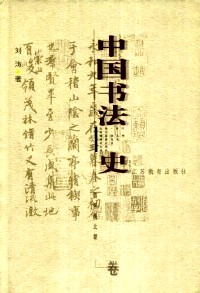 中国书法史
魏晋南北朝
卷
刘涛
著
江苏教育出版社
永和九年歲在癸丑暮春之初會
于會稽山陰之蘭亭脩稧事
也羣賢畢至少長咸集此地
有崇山峻領茂林脩竹又有清流激